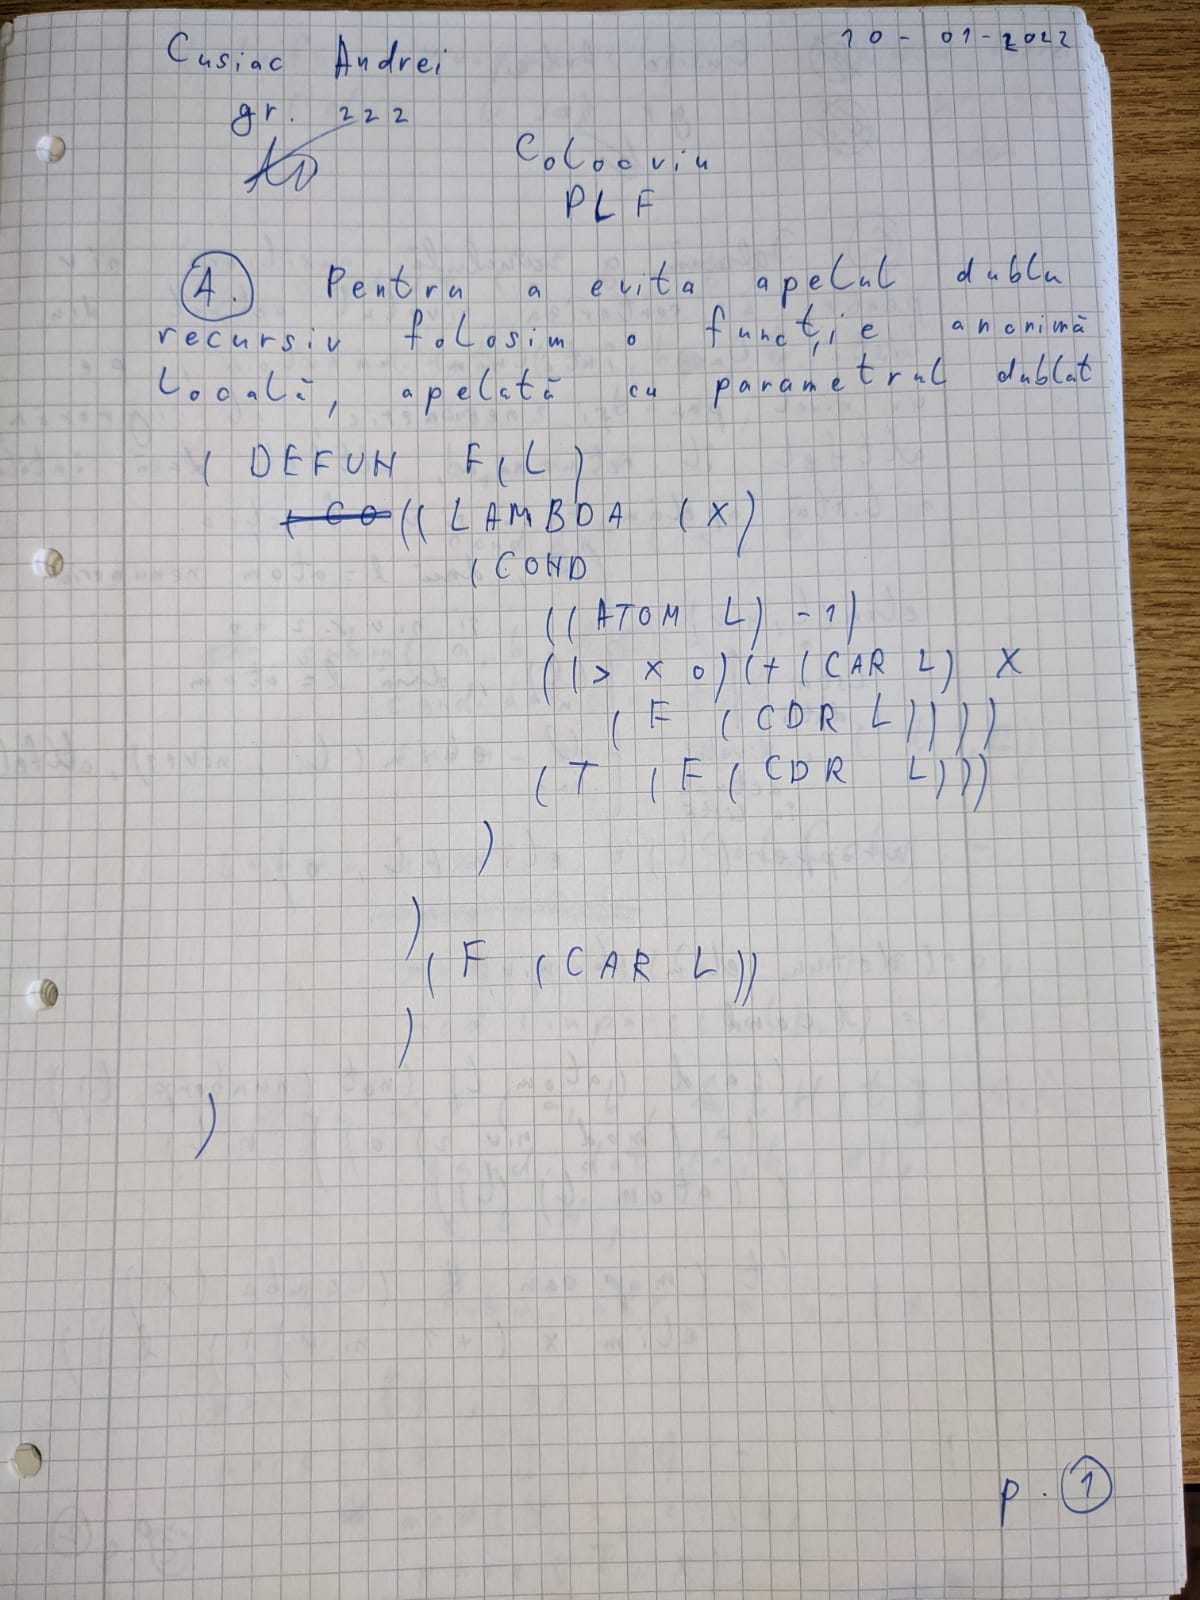 Cusiac Andrei
10-01-2022
gr. 222
Colocviu
PLF
A. Pentru a evita apelul dublu
recursiv folosim o funcție anonimă
locală, apelată cu parametrul dublat
( DEFUN F(L)
((LAMBDA (X)
(COND
((ATOM L) -1)
((> X 0)(+ (CAR L) X
(F (CDR L))))
(T (F (CDR L)))
)
)
(F (CAR L))
)
)
p. 1